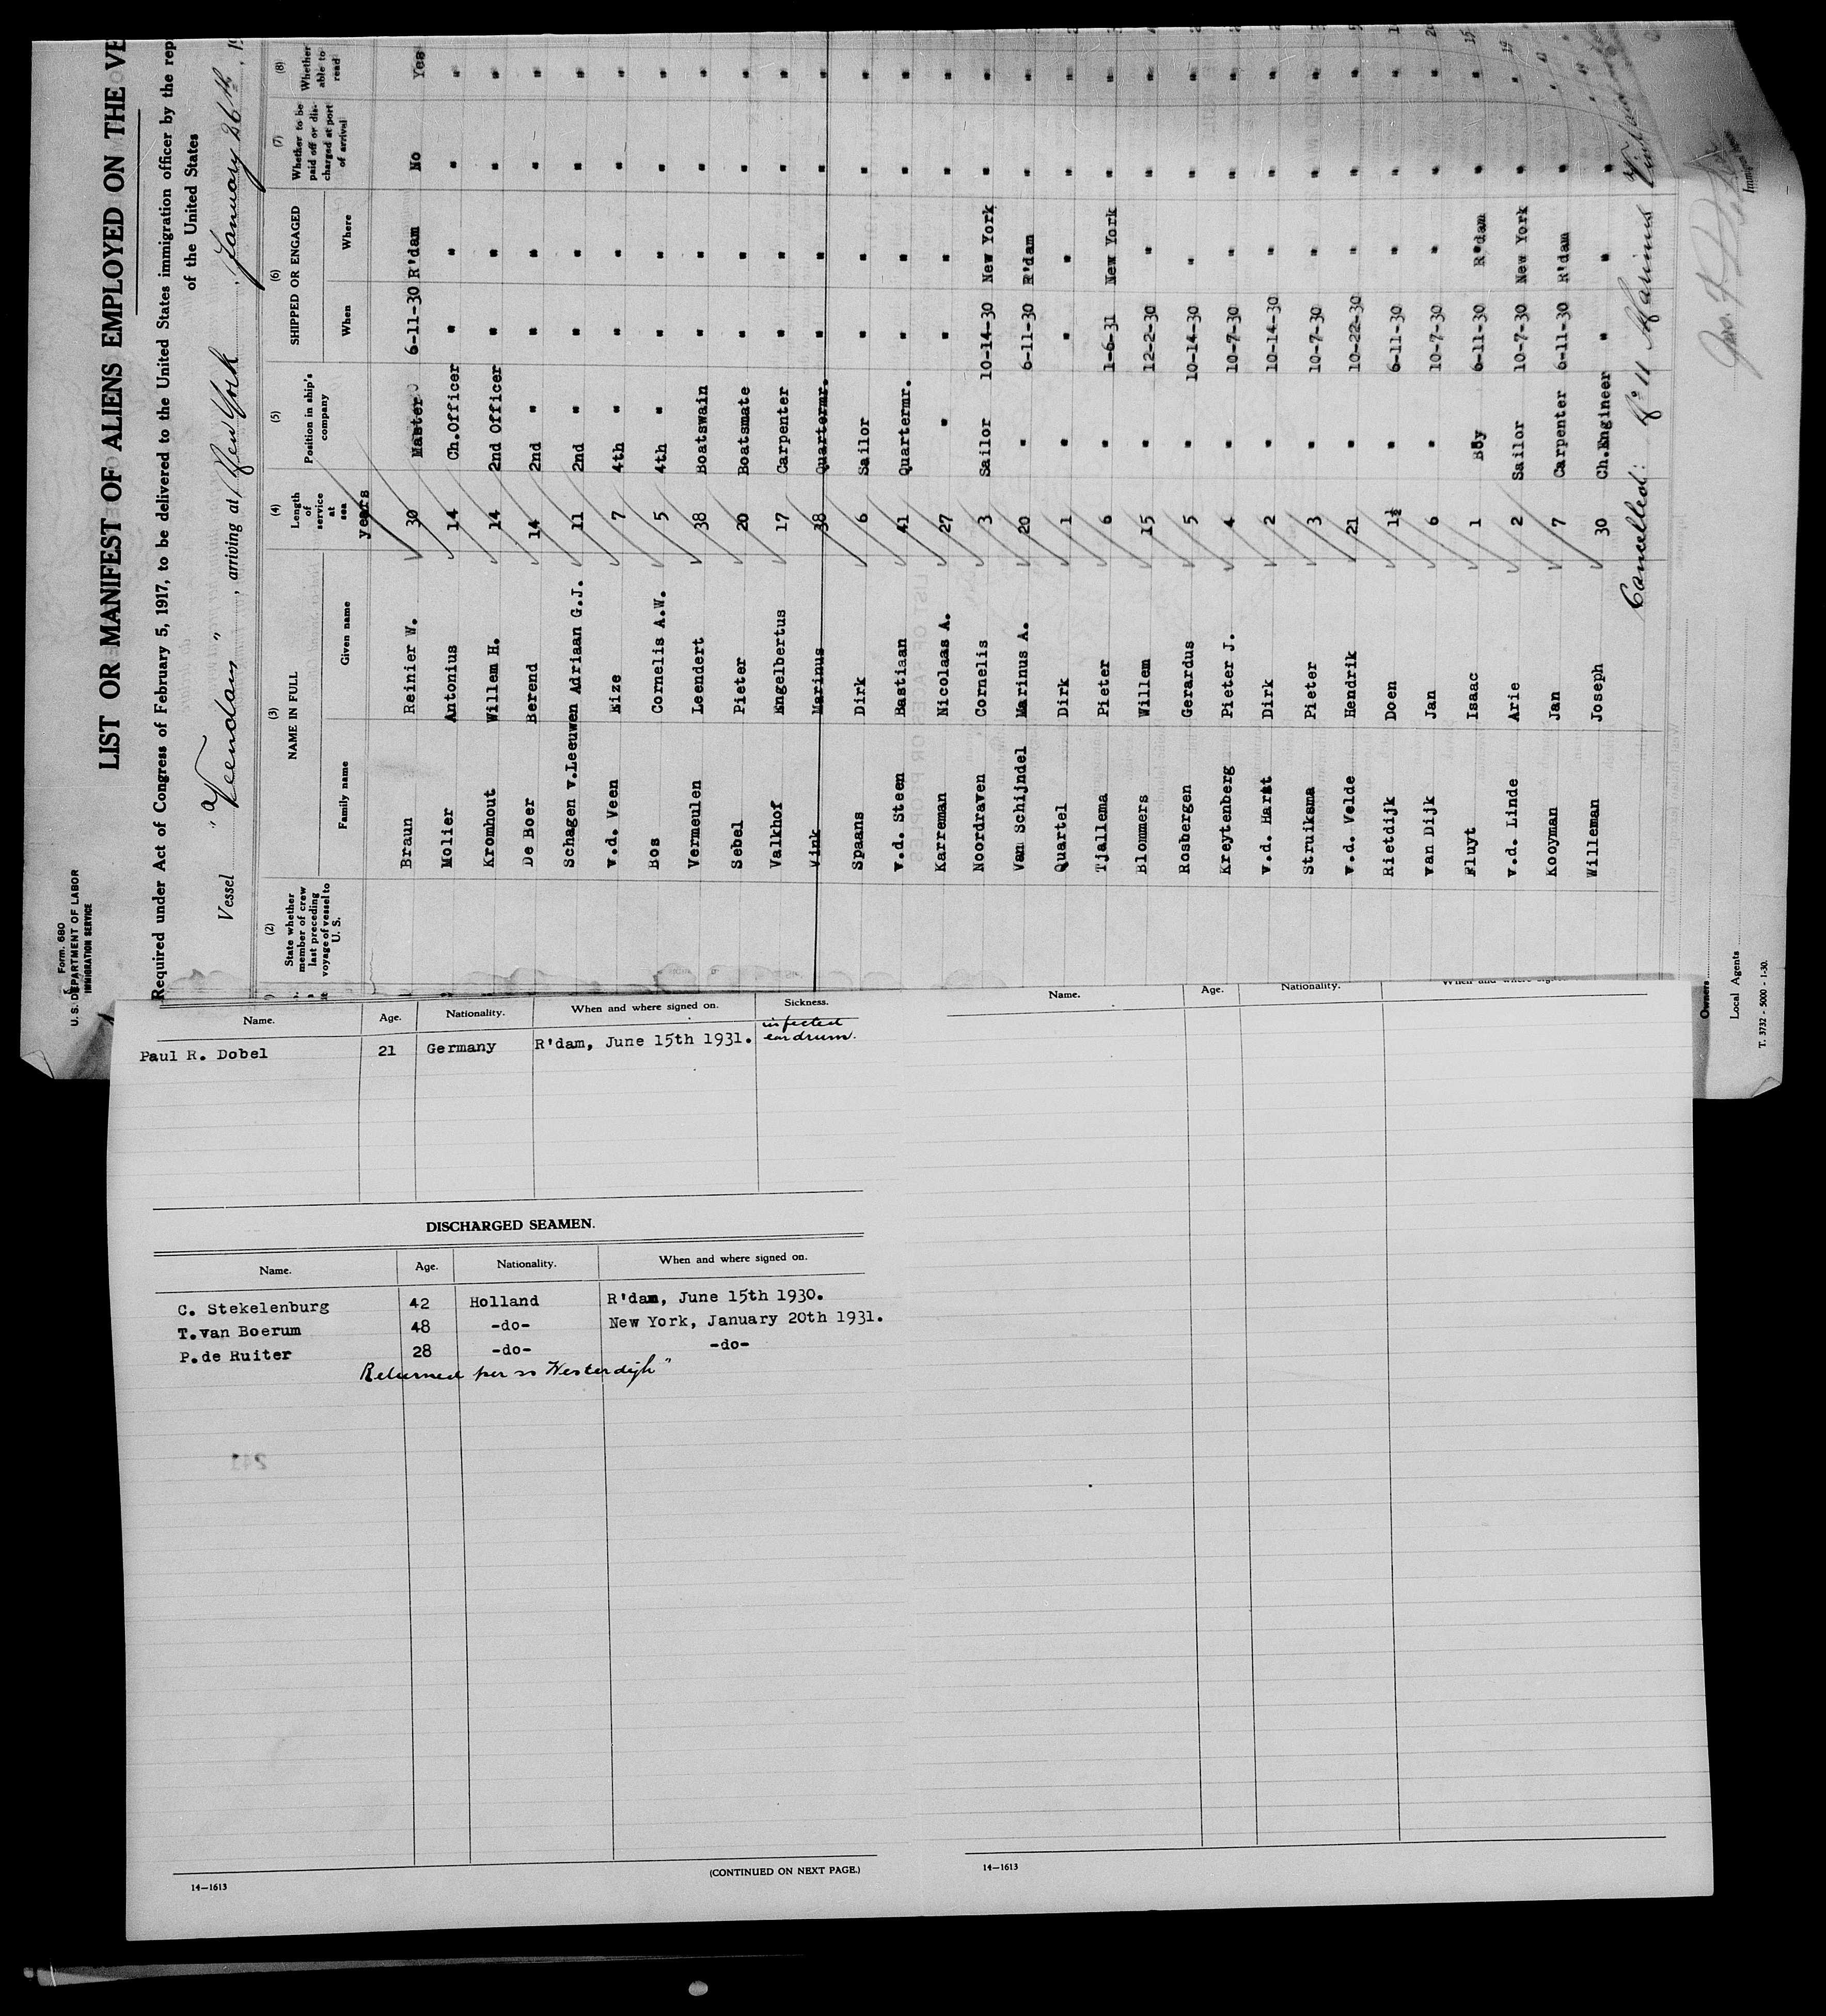 Form. 680
U. S. DEPARTMENT OF LABOR
IMMIGRATION SERVICE
LIST OR MANIFEST OF ALIENS EMPLOYED ON THE VE
Required under Act of Congress of February 5, 1917, to be delivered to the United States immigration officer by the rep
of the United States
Vessel "Veendam", arriving at New York, January 26th, 19
(2) State whether member of crew last preceding voyage of vessel to U. S.
(3) NAME IN FULL
Family name Given name
(4) Length of service at sea
years
(5) Position in ship's company
(6) SHIPPED OR ENGAGED
When Where
(7) Whether to be paid off or discharged at port of arrival
(8) Whether able to read
Braun Reinier W. 30 Master 6-11-30 R'dam No Yes
Molier Antonius 14 Ch.Officer " " " "
Kromhout Willem H. 14 2nd Officer " " " "
De Boer Berend 14 2nd " " " " "
Schagen v.Leeuwen Adriaan G.J. 11 2nd " " " " "
v.d. Veen Eize 7 4th " " " " "
Bos Cornelis A.W. 5 4th " " " " "
Vermeulen Leendert 38 Boatswain " " " "
Sebel Pieter 20 Boatsmate " " " "
Valkhof Engelbertus 17 Carpenter " " " "
Vink Marinus 38 Quartermr. " " " "
Spaans Dirk 6 Sailor " " " "
v.d. Steen Bastiaan 41 Quartermr. " " " "
Karreman Nicolaas A. 27 " " " " "
Noordraven Cornelis 3 Sailor 10-14-30 New York " "
Van Schijndel Marinus A. 20 " 6-11-30 R'dam " "
Quartel Dirk 1 " " " " "
Tjallema Pieter 6 " 1-6-31 New York " "
Blommers Willem 15 " 12-2-30 " " "
Rosbergen Gerardus 5 " 10-14-30 " " "
Kreytenberg Pieter J. 4 " 10-7-30 " " "
v.d. Harst Dirk 2 " 10-14-30 " " "
Struiksma Pieter 3 " 10-7-30 " " "
v.d. Velde Hendrik 21 " 10-22-30 " " "
Rietdijk Doen 1½ " 6-11-30 " " "
van Dijk Jan 6 " 10-7-30 " " "
Fluyt Isaac 1 Boy 6-11-30 R'dam " "
v.d. Linde Arie 2 Sailor 10-7-30 New York " "
Kooyman Jan 7 Carpenter 6-11-30 R'dam "
Willeman Joseph 30 Ch.Engineer " " "
Cancelled: No 11 Marinus Vink
Owners
Local Agents
T. 3732 - 5000 - 1-30.
Name. Age. Nationality. When and where signed on. Sickness.
Paul R. Dobel 21 Germany R'dam, June 15th 1931. infected eardrum.
DISCHARGED SEAMEN.
Name. Age. Nationality. When and where signed on.
C. Stekelenburg 42 Holland R'dam, June 15th 1930.
T.van Boerum 48 -do- New York, January 20th 1931.
P.de Ruiter 28 -do- -do-
Returned per ss Westerdijk"
241
(CONTINUED ON NEXT PAGE.)
14—1613
Name. Age. Nationality. When and where signed
14—1613